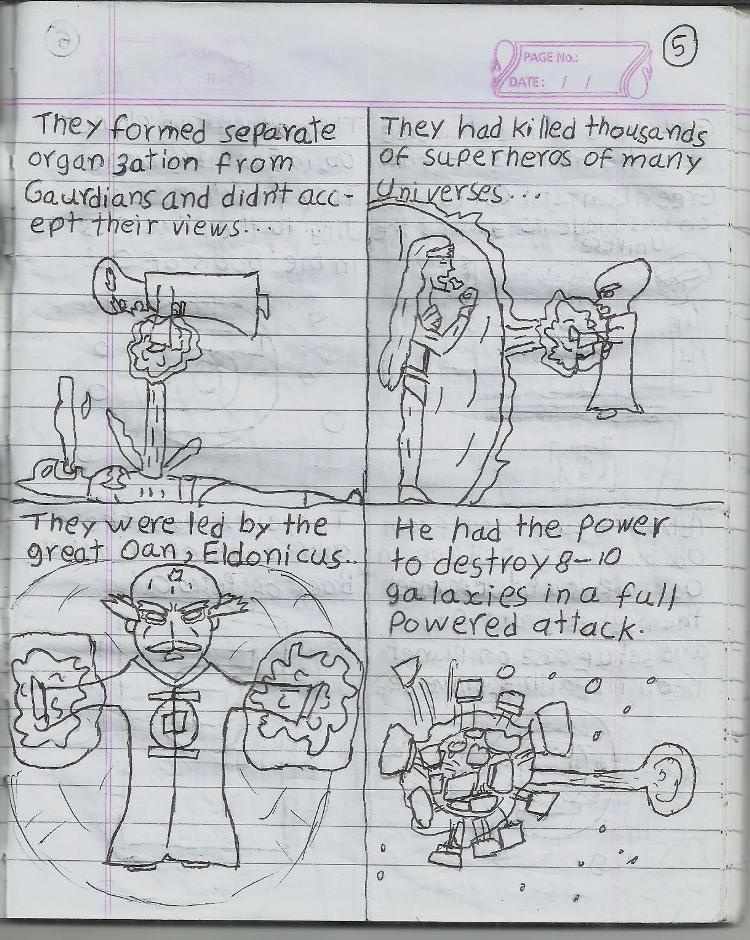 5
PAGE No.:
DATE: / /
They formed separate
organ zation from
Gaurdians and didn't acc-
ept their views...
They had killed thousands
of superheros of many
Universes...
They were led by the
great Oan, Eldonicus..
He had the power
to destroy 8-10
galaxies in a full
powered attack.